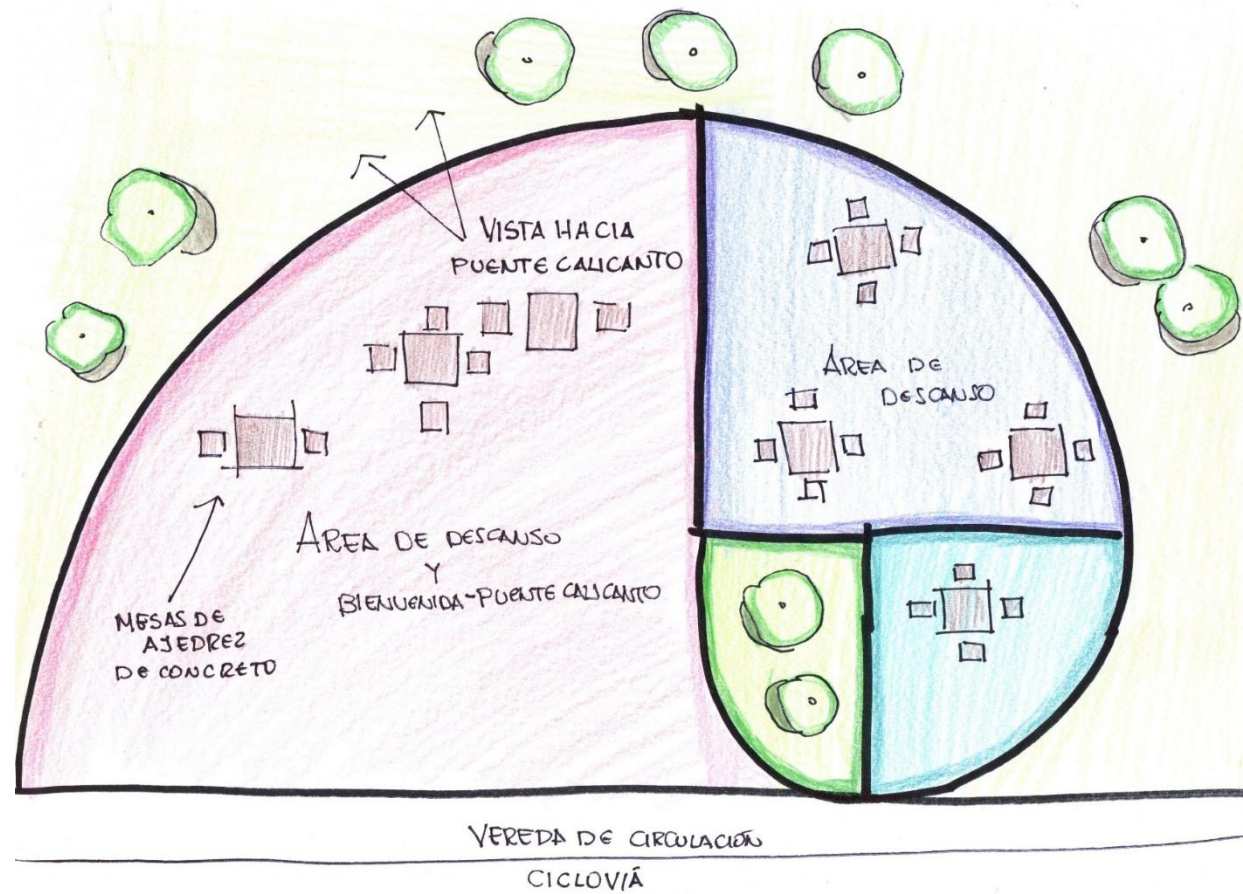 VISTA HACIA
PUENTE CALICANTO
ÁREA DE
DESCANSO
ÁREA DE DESCANSO
Y
BIENVENIDA-PUENTE CALICANTO
MESAS DE
AJEDREZ
DE CONCRETO
VEREDA DE CIRCULACIÓN
CICLOVÍÁ